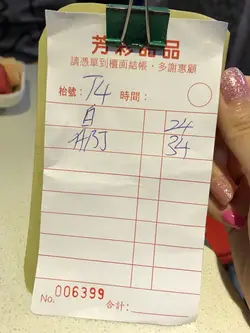 芳彩甜品
請憑單到櫃面結帳、多謝惠顧
枱號：T4 時間：
24
34
No. 006399 合計：